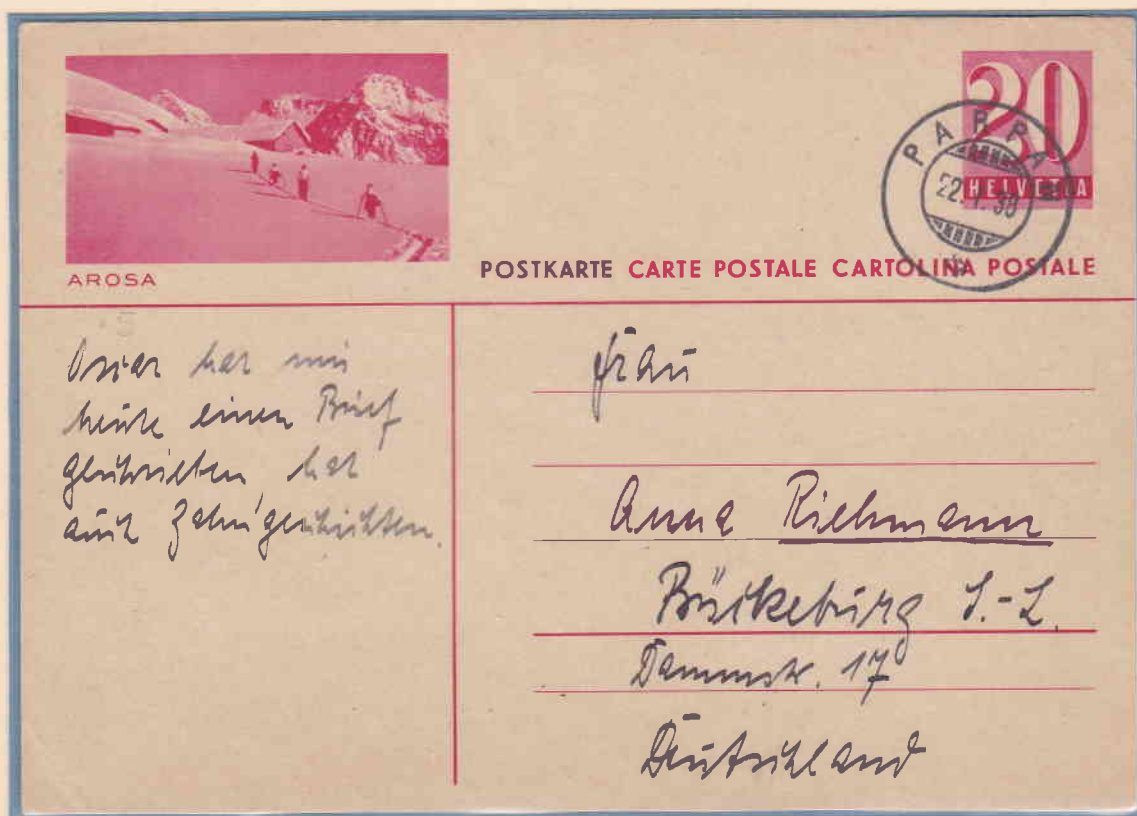 20
HELVETIA
PARPAN
22.1.38
AROSA
POSTKARTE CARTE POSTALE CARTOLINA POSTALE
Oscar hat mir
heute einen Brief
geschrieben hat
auch Zahngeschichten.
Frau
Anna Riehmann
Bückeburg S.-L.
Dammstr. 17
Deutschland